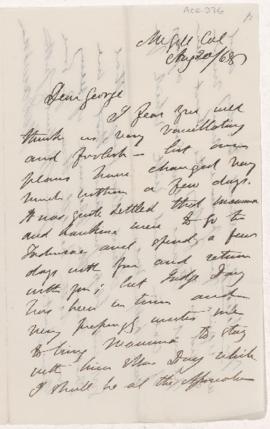 Acc. 976
McGill Col
Aug 20/68
Dear George
I fear you will
think us very vacillating
and foolish - but our
plans have changed very
much within a few days.
It was quite settled that mamma
and were to go to
and spend a few
days with you and return
with you; but Judge Day
has been in town and
very wants me
to bring Mamma to stay
with him & Mrs Day while
I shall be at the